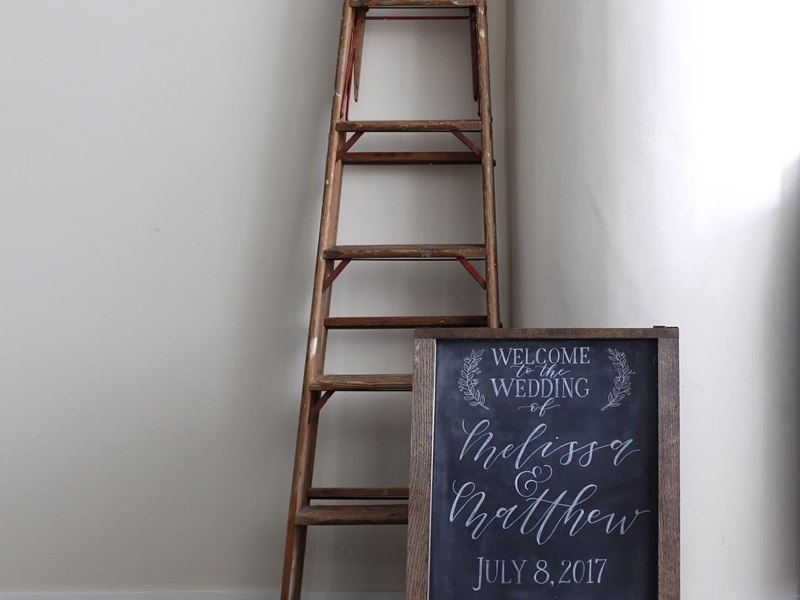 WELCOME
to the
WEDDING
of
Melissa
&
Matthew
JULY 8, 2017